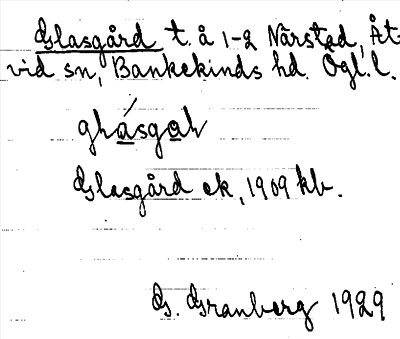 Glasgård t. å 1-2 Närstad, Åt-
vid sn, Bankekinds hd. Ögl. l.
Glasgård ek, 1909 kb.
G. Granberg 1929